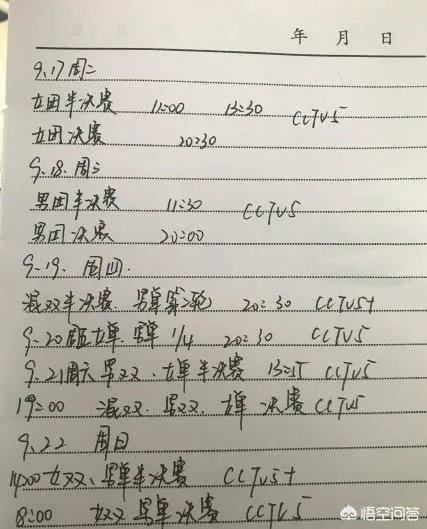 年 月 日
9.17周二
女团半决赛 11:00 13:30 CCTV5
女团决赛 20:30
9.18.周三
男团半决赛 11:30 CCTV5
男团决赛 20:00
9.19. 周四.
混双半决赛.男单第二轮 20:30 CCTV5+
9.20周五女单.男单 1/4 20:30 CCTV5
9.21周六男双、女单半决赛 13:15 CCTV5
19:00 混双.男双.女单决赛 CCTV5
9.22 周日
14:00女双、男单半决赛 CCTV5+
18:00 女双 男单决赛 CCTV5
悟空问答